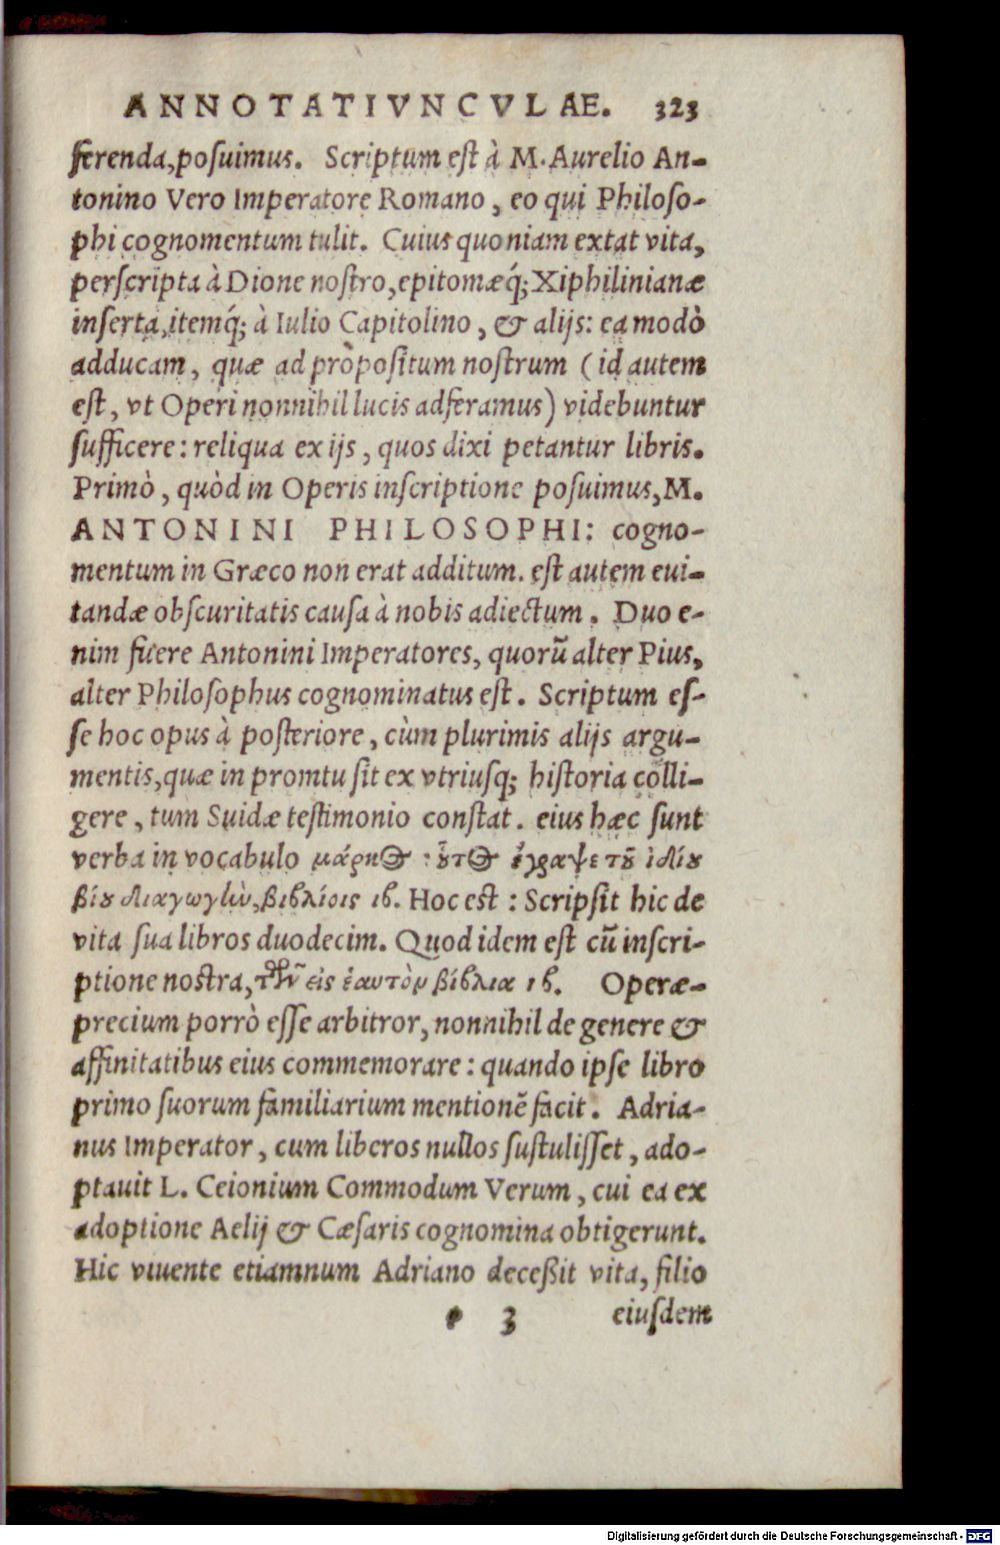 ANNOTATIVNCVLAE. 323
ferenda, posuimus. Scriptum est à M. Aurelio An-
tonino Vero Imperatore Romano, eo qui Philoso-
phi cognomentum tulit. Cuius quoniam extat vita,
perscripta à Dione nostro, epitomæq́; Xiphilinianæ
inserta, itemq́; à Iulio Capitolino, & alijs: ea modò
adducam, quæ ad pròpositum nostrum (id autem
est, vt Operi nonnihil lucis adferamus) videbuntur
sufficere: reliqua ex ijs, quos dixi petantur libris.
Primò, quòd in Operis inscriptione posuimus, M.
ANTONINI PHILOSOPHI: cogno-
mentum in Græco non erat additum. est autem eui-
tandæ obscuritatis causa à nobis adiectum. Duo e-
nim fuere Antonini Imperatores, quorũ alter Pius,
alter Philosophus cognominatus est. Scriptum es-
se hoc opus à posteriore, cùm plurimis alijs argu-
mentis, quæ in promtu sit ex vtriusq; historia colli-
gere, tum Suidæ testimonio constat. eius hæc sunt
verba in vocabulo μάρκος: οὗτος ἔγραψε τοῦ ἰδίου
βίου διαγωγὴν, βιβλίοις ιβ. Hoc est: Scripsit hic de
vita sua libros duodecim. Quod idem est cũ inscri-
ptione nostra, τῶν εἰς ἑαυτὸν βίβλια ιβ. Operæ-
precium porrò esse arbitror, nonnihil de genere &
affinitatibus eius commemorare: quando ipse libro
primo suorum familiarium mentionẽ facit. Adria-
nus Imperator, cum liberos nullos sustulisset, ado-
ptauit L. Ceionium Commodum Verum, cui ea ex
adoptione Aelij & Cæsaris cognomina obtigerunt.
Hic viuente etiamnum Adriano deceßit vita, filio
p 3 eiusdem
Digitalisierung gefördert durch die Deutsche Forschungsgemeinschaft - DFG